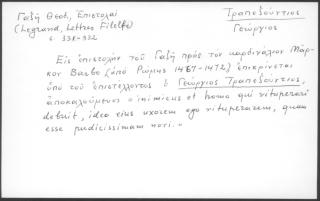 Γαζῆ Θεοδ., Ἐπιστολαί
(Legrand, Lettres Filelfe)
σ. 331-332
Τραπεζούντιος
Γεώργιος
Εἰς ἐπιστολὴν τοῦ Γαζῆ πρὸς τον καρδινάλιον Μάρ-
κον Barbo (ἀπὸ Ρώμης 1467-1472) ἐπικρίνεται
ὑπὸ τοῦ ἐπιστέλλοντος ὁ Γεώργιος Τραπεζούντιος,
ἀποκαλούμενος «inimicus et homo qui vituperari
debuit, ideo eius uxorem ego vituperarem, quam
esse pudicissimam novi.»